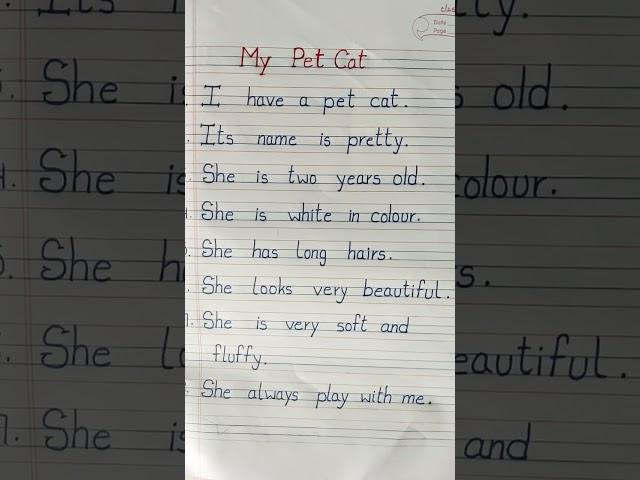 class
Date
Page
My Pet Cat
I have a pet cat.
Its name is pretty.
She is two years old.
She is white in colour.
She has long hairs.
She looks very beautiful.
7. She is very soft and
fluffy.
She always play with me.